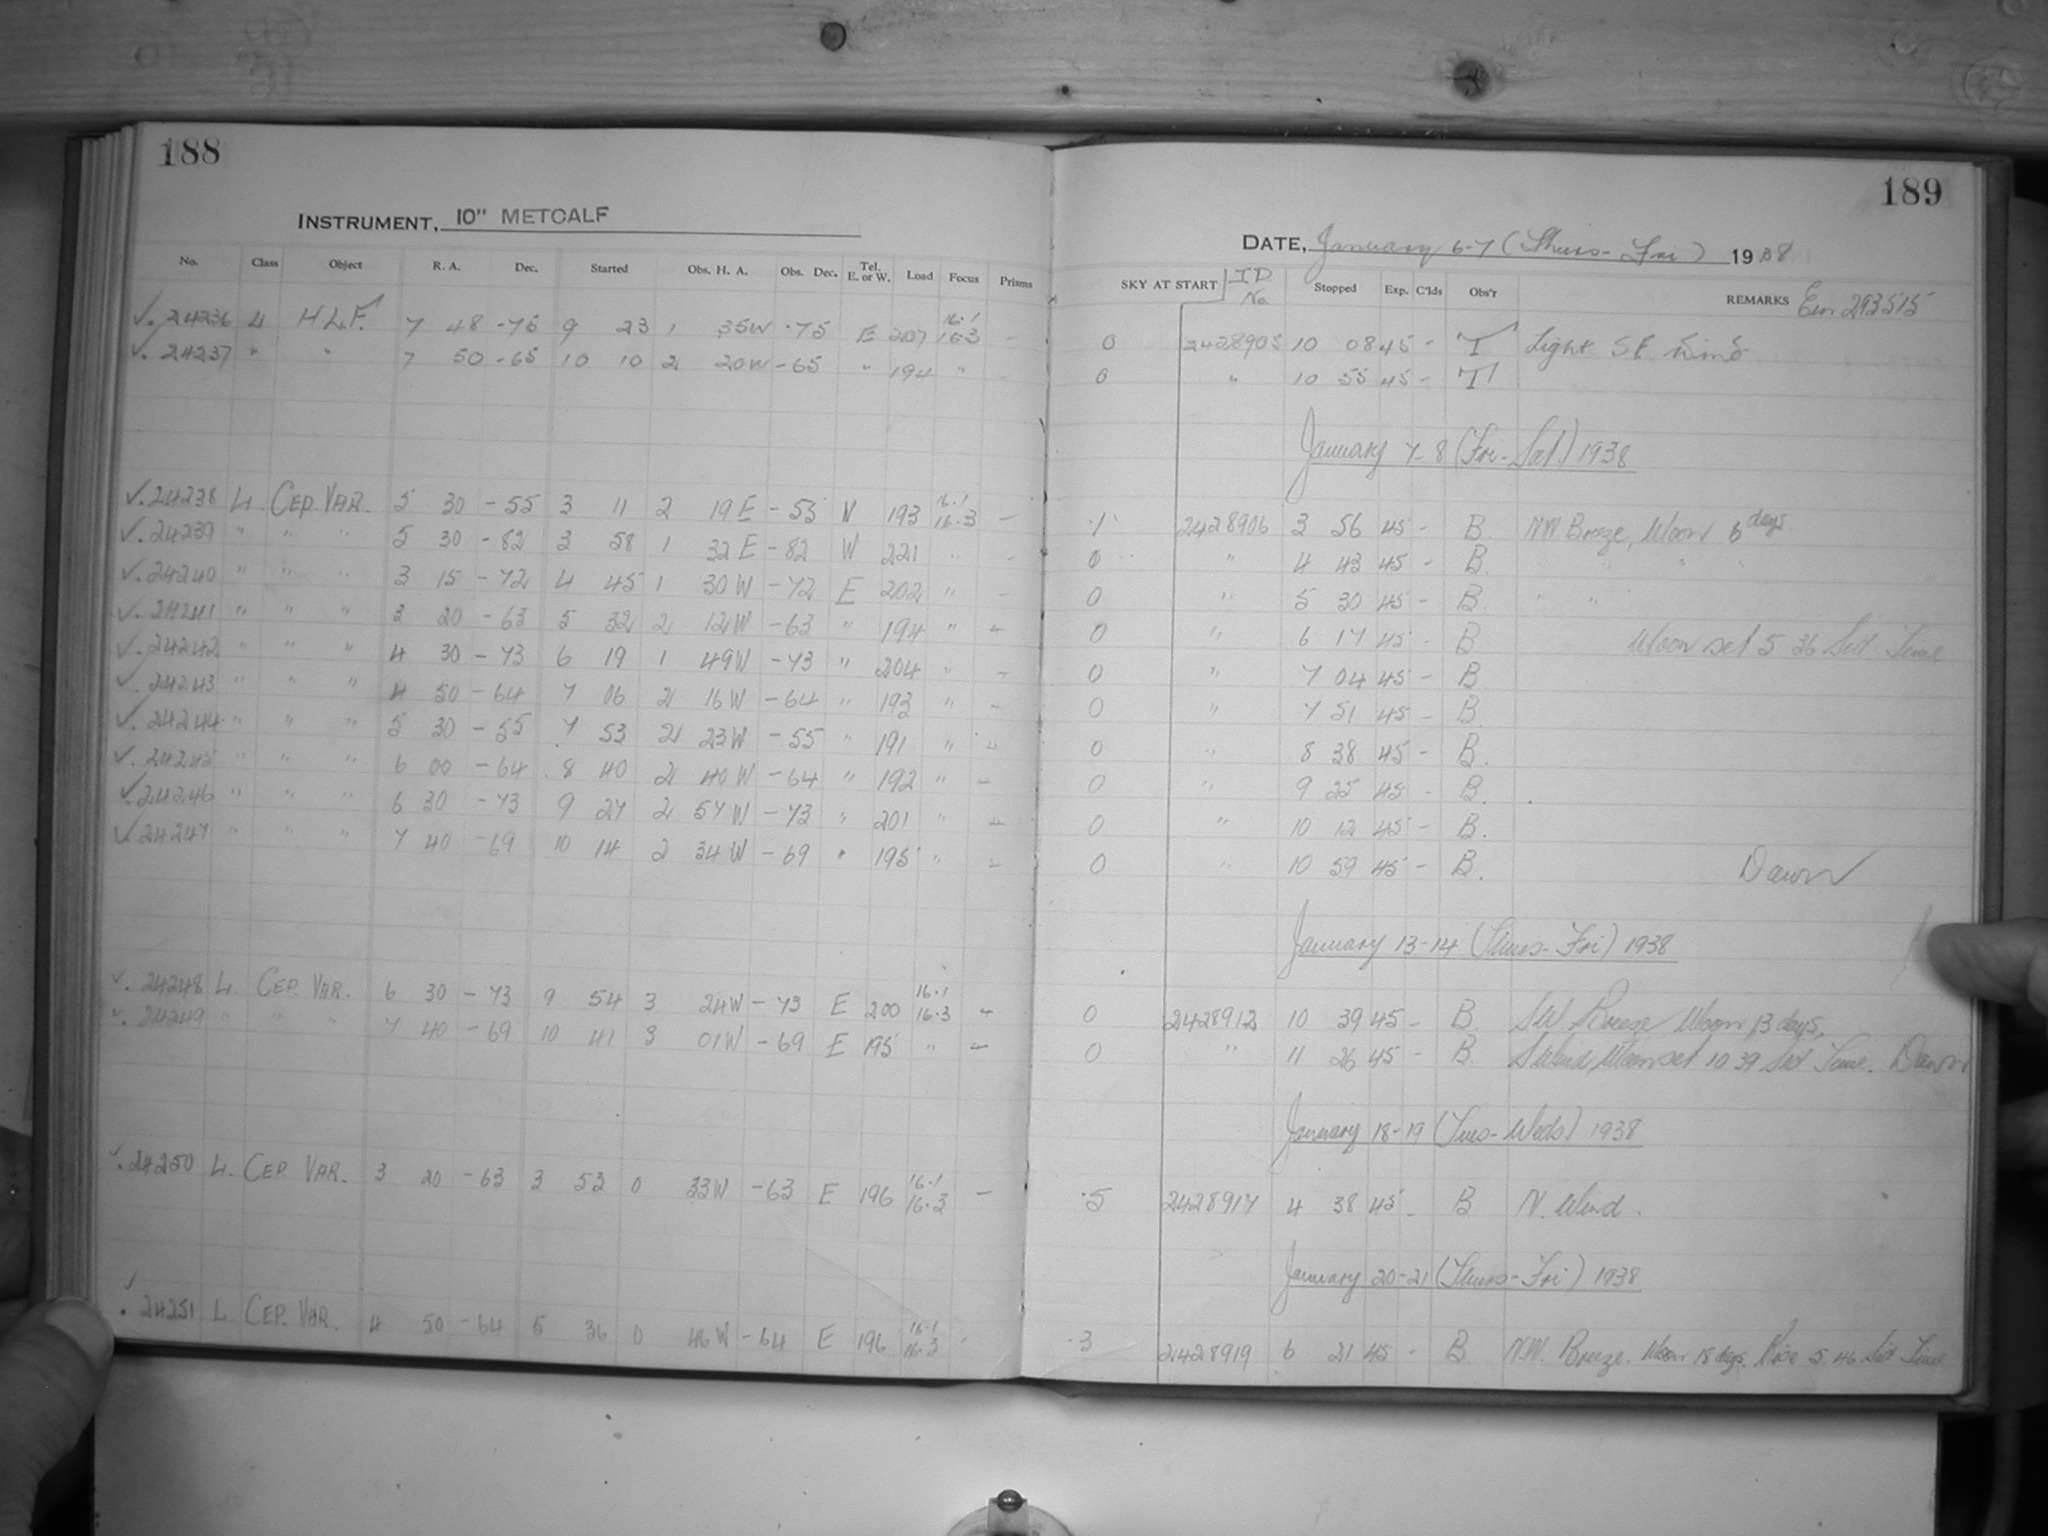 188
INSTRUMENT, 10" METCALF
No. Class Object R. A. Dec. Started Obs. H. A. Obs. Dec. Tel. E. or W. Load Focus Prisms
✓. 24236 L H.L.F. 7 48 -75 9 23 1 35W -75 E 207 16.1 16.3 -
✓. 24237 " " 7 50 -65 10 10 2 20W -65 " 194 " -
✓. 24238 L. CEP. VAR. 5 30 -55 3 11 2 19E -55 W 193 16.1 16.3 -
✓. 24239 " " " 5 30 -82 3 58 1 32E -82 W 221 " -
✓. 24240 " " " 3 15 -72 4 45 1 30W -72 E 202 " -
✓. 24241 " " " 3 20 -63 5 32 2 12W -63 " 194 " -
✓. 24242 " " " 4 30 -73 6 19 1 49W -73 " 204 " -
✓. 24243 " " " 4 50 -64 7 06 2 16W -64 " 193 " -
✓. 24244 " " " 5 30 -55 7 53 2 23W -55 " 191 " -
✓. 24245 " " " 6 00 -64 8 40 2 40W -64 " 192 " -
✓. 24246 " " " 6 30 -73 9 27 2 57W -73 " 201 " -
✓. 24247 " " " 7 40 -69 10 14 2 34W -69 " 195 " -
✓. 24248 L. CEP. VAR. 6 30 -73 9 54 3 24W -73 E 200 16.1 16.3 -
✓. 24249 " " " 7 40 -69 10 41 3 01W -69 E 195 " -
✓. 24250 L. CEP. VAR. 3 20 -63 3 53 0 33W -63 E 196 16.1 16.3 -
✓. 24251 L. CEP. VAR. 4 50 -64 5 36 0 46W -64 E 196 16.1 16.3 -
189
DATE, January 6-7 (Thurs-Fri) 1938
SKY AT START J.D. No. Stopped Exp. C'lds Obs'r REMARKS 293515
0 2428905 10 08 45 - T Light S.E. Wind
0 " 10 55 45 - T
January 7-8 (Fri-Sat.) 1938
.1 2428906 3 56 45 - B. NW Breeze, Moon 6 days.
0 " 4 43 45 - B. " " " "
0 " 5 30 45 - B. " "
0 " 6 17 45 - B Moon set 5 36 Sid Time
0 " 7 04 45 - B
0 " 7 51 45 - B.
0 " 8 38 45 - B.
0 " 9 25 45 - B.
0 " 10 12 45 - B.
0 " 10 59 45 - B. Dawn
January 13-14 (Thurs-Fri) 1938
0 2428912 10 39 45 - B. SW Breeze Moon 13 days.
0 " 11 26 45 - B. S Wind Moon set 10 39 Sid Time. Dawn
January 18-19 (Tues-Weds) 1938
.5 2428917 4 38 45 - B N. Wind.
January 20-21 (Thurs-Fri) 1938
.3 2428919 6 21 45 - B. N.W. Breeze. Moon 18 days. Rise 5 46 Sid Time